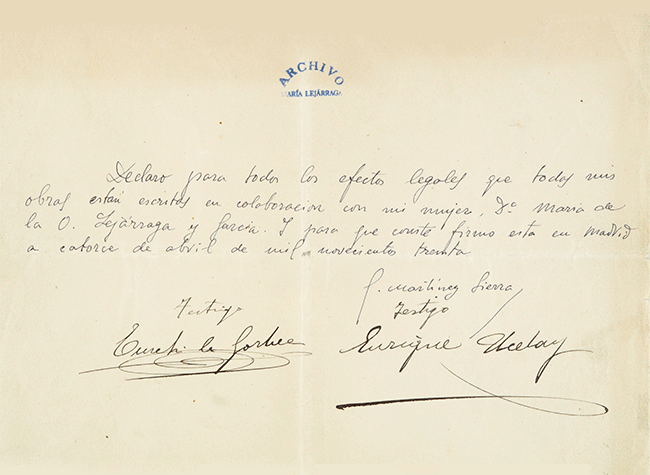 ARCHIVO
MARÍA LEJÁRRAGA
Declaro para todos los efectos legales que todas mis
obras están escritas en colaboracion con mi mujer, Dª. Maria de
la O. Lejárraga y García. Y para que conste firmo esta en Madrid
a catorce de abril de mil novecientos treinta
G. Martínez Sierra
Testigo Testigo
Eusebio de Gorbea Enrique Ucelay